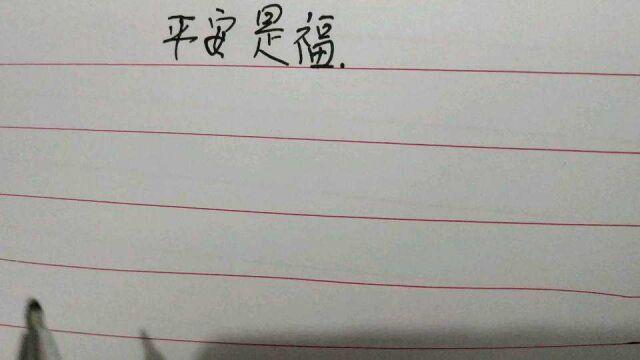 平安是福.